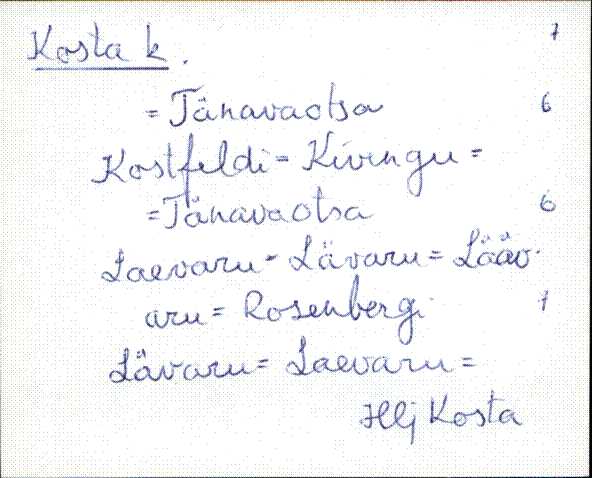 Kosta k. 7
= Tänavaotsa 6
Kostfeldi = Kivingu =
= Tänavaotsa 6
Laevaru - Lävaru = Lääv-
aru = Rosenbergi 1
Lävaru = Laevaru =
Hlj Kosta